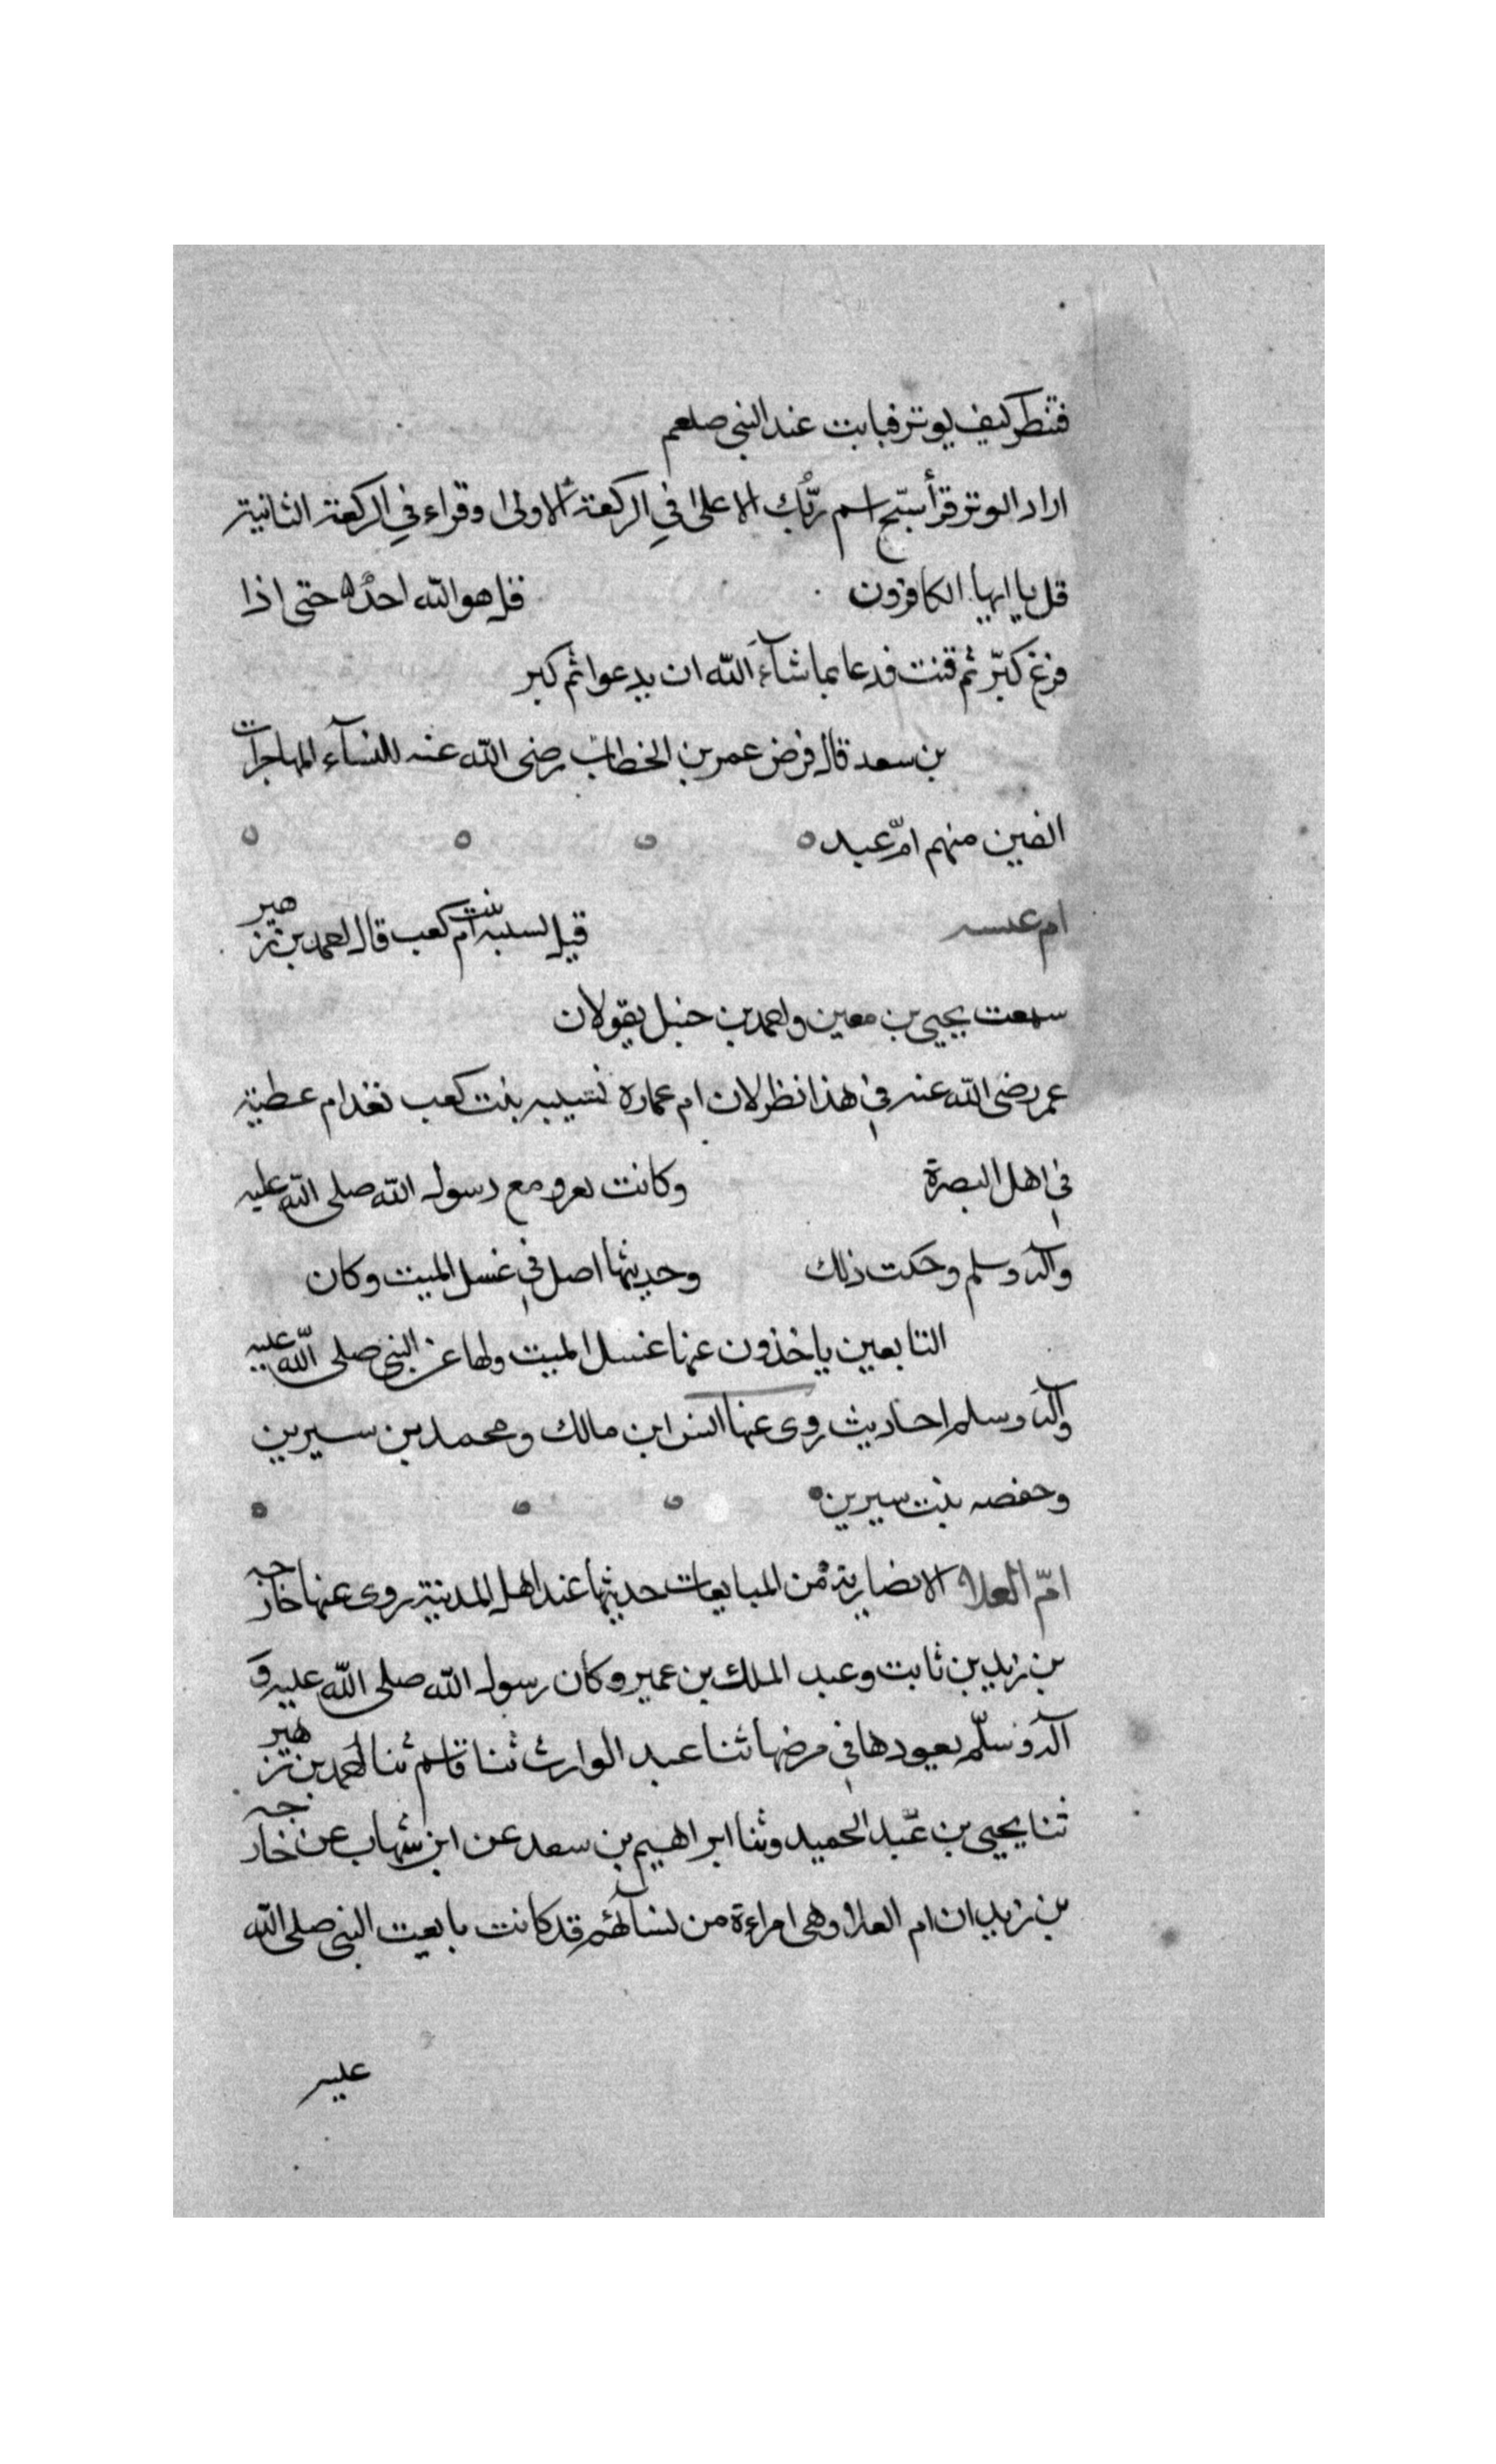 فتنطر كيف يوتر فباتت عند النبي صلعم
اراد الوتر قرأ سبّح اسم ربّك الاعلى في الركعة الاولى وقراء في الركعة الثانية
قل يا ايها الكافرون قل هو الله احدٌ حتى اذا
فرغ كبّر ثم قنت فدعا بما شآء الله ان يدعوا ثم كبر
بن سعد قال فرض عمر بن الخطاب رضى الله عنه للنسآء المهاجرات
الفين منهم امّ عبد
ام قيل نسيبه بنت ام كعب قال احمد بن زهير
سمعت يحيى بن معين واحمد بن حنبل يقولان
عمر رضى الله عنه في هذا نظر لان ام عمارة نسيبه بنت كعب تغد ام عطية
في اهل البصرة وكانت تعرو مع رسول الله صلى الله عليه
وآله وسلم وحكت ذلك وحديثها اصل في غسل الميت وكان
التابعين ياخذون عنها غسل الميت ولها عن النبي صلى الله عليه
وآله وسلم احاديث روى عنها انس ابن مالك ومحمد بن سيرين
وحفصه بنت سيرين
امّ العلا الانصارية من المبايعات حديثها عند اهل المدينة روى عنها خارجه
بن زيد بن ثابت وعبد الملك بن عمير وكان رسول الله صلى الله عليه و
آله وسلّم يعودها في مرضها ثنا عبد الوارث ثنا قاسم ثنا احمد بن زهير
ثنا يحيى بن عبد الحميد وثنا ابراهيم بن سعد عن ابن شهاب عن خارجه
بن زيد ان ام العلا وهى امراءة من نسآئهم قد كانت بايعت النبي صلى الله
عليه